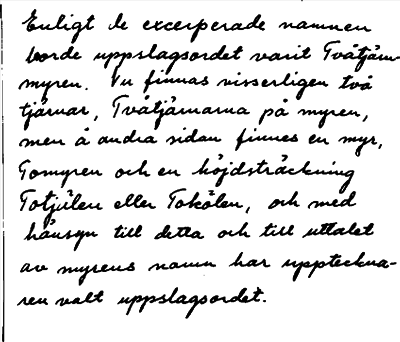 Enligt de excerperade namnen
borde uppslagsordet varit Tvåtjärn-
myren. Nu finnas visserligen två
tjärnar, Tvåtjärnarna på myren,
men å andra sidan finnes en myr,
Tomyren och en höjdsträckning
Totjälen eller Tokölen, och med
hänsyn till detta och till uttalet
av myrens namn har uppteckna-
ren valt uppslagsordet.